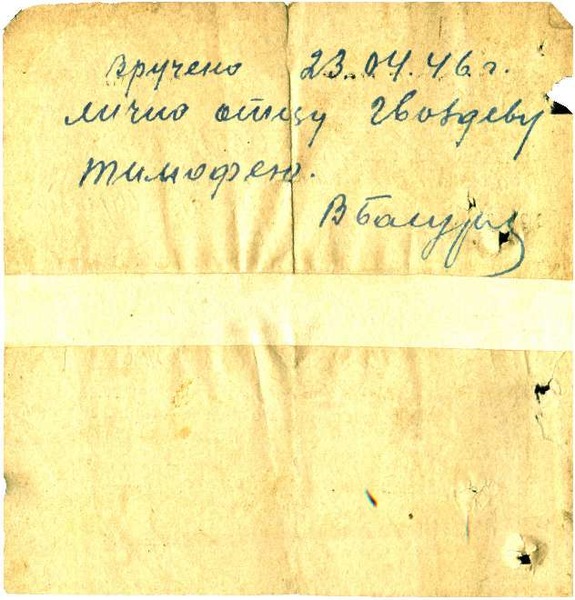 вручено 23.04.46 г.
лично отцу Гвоздеву
Тимофею.